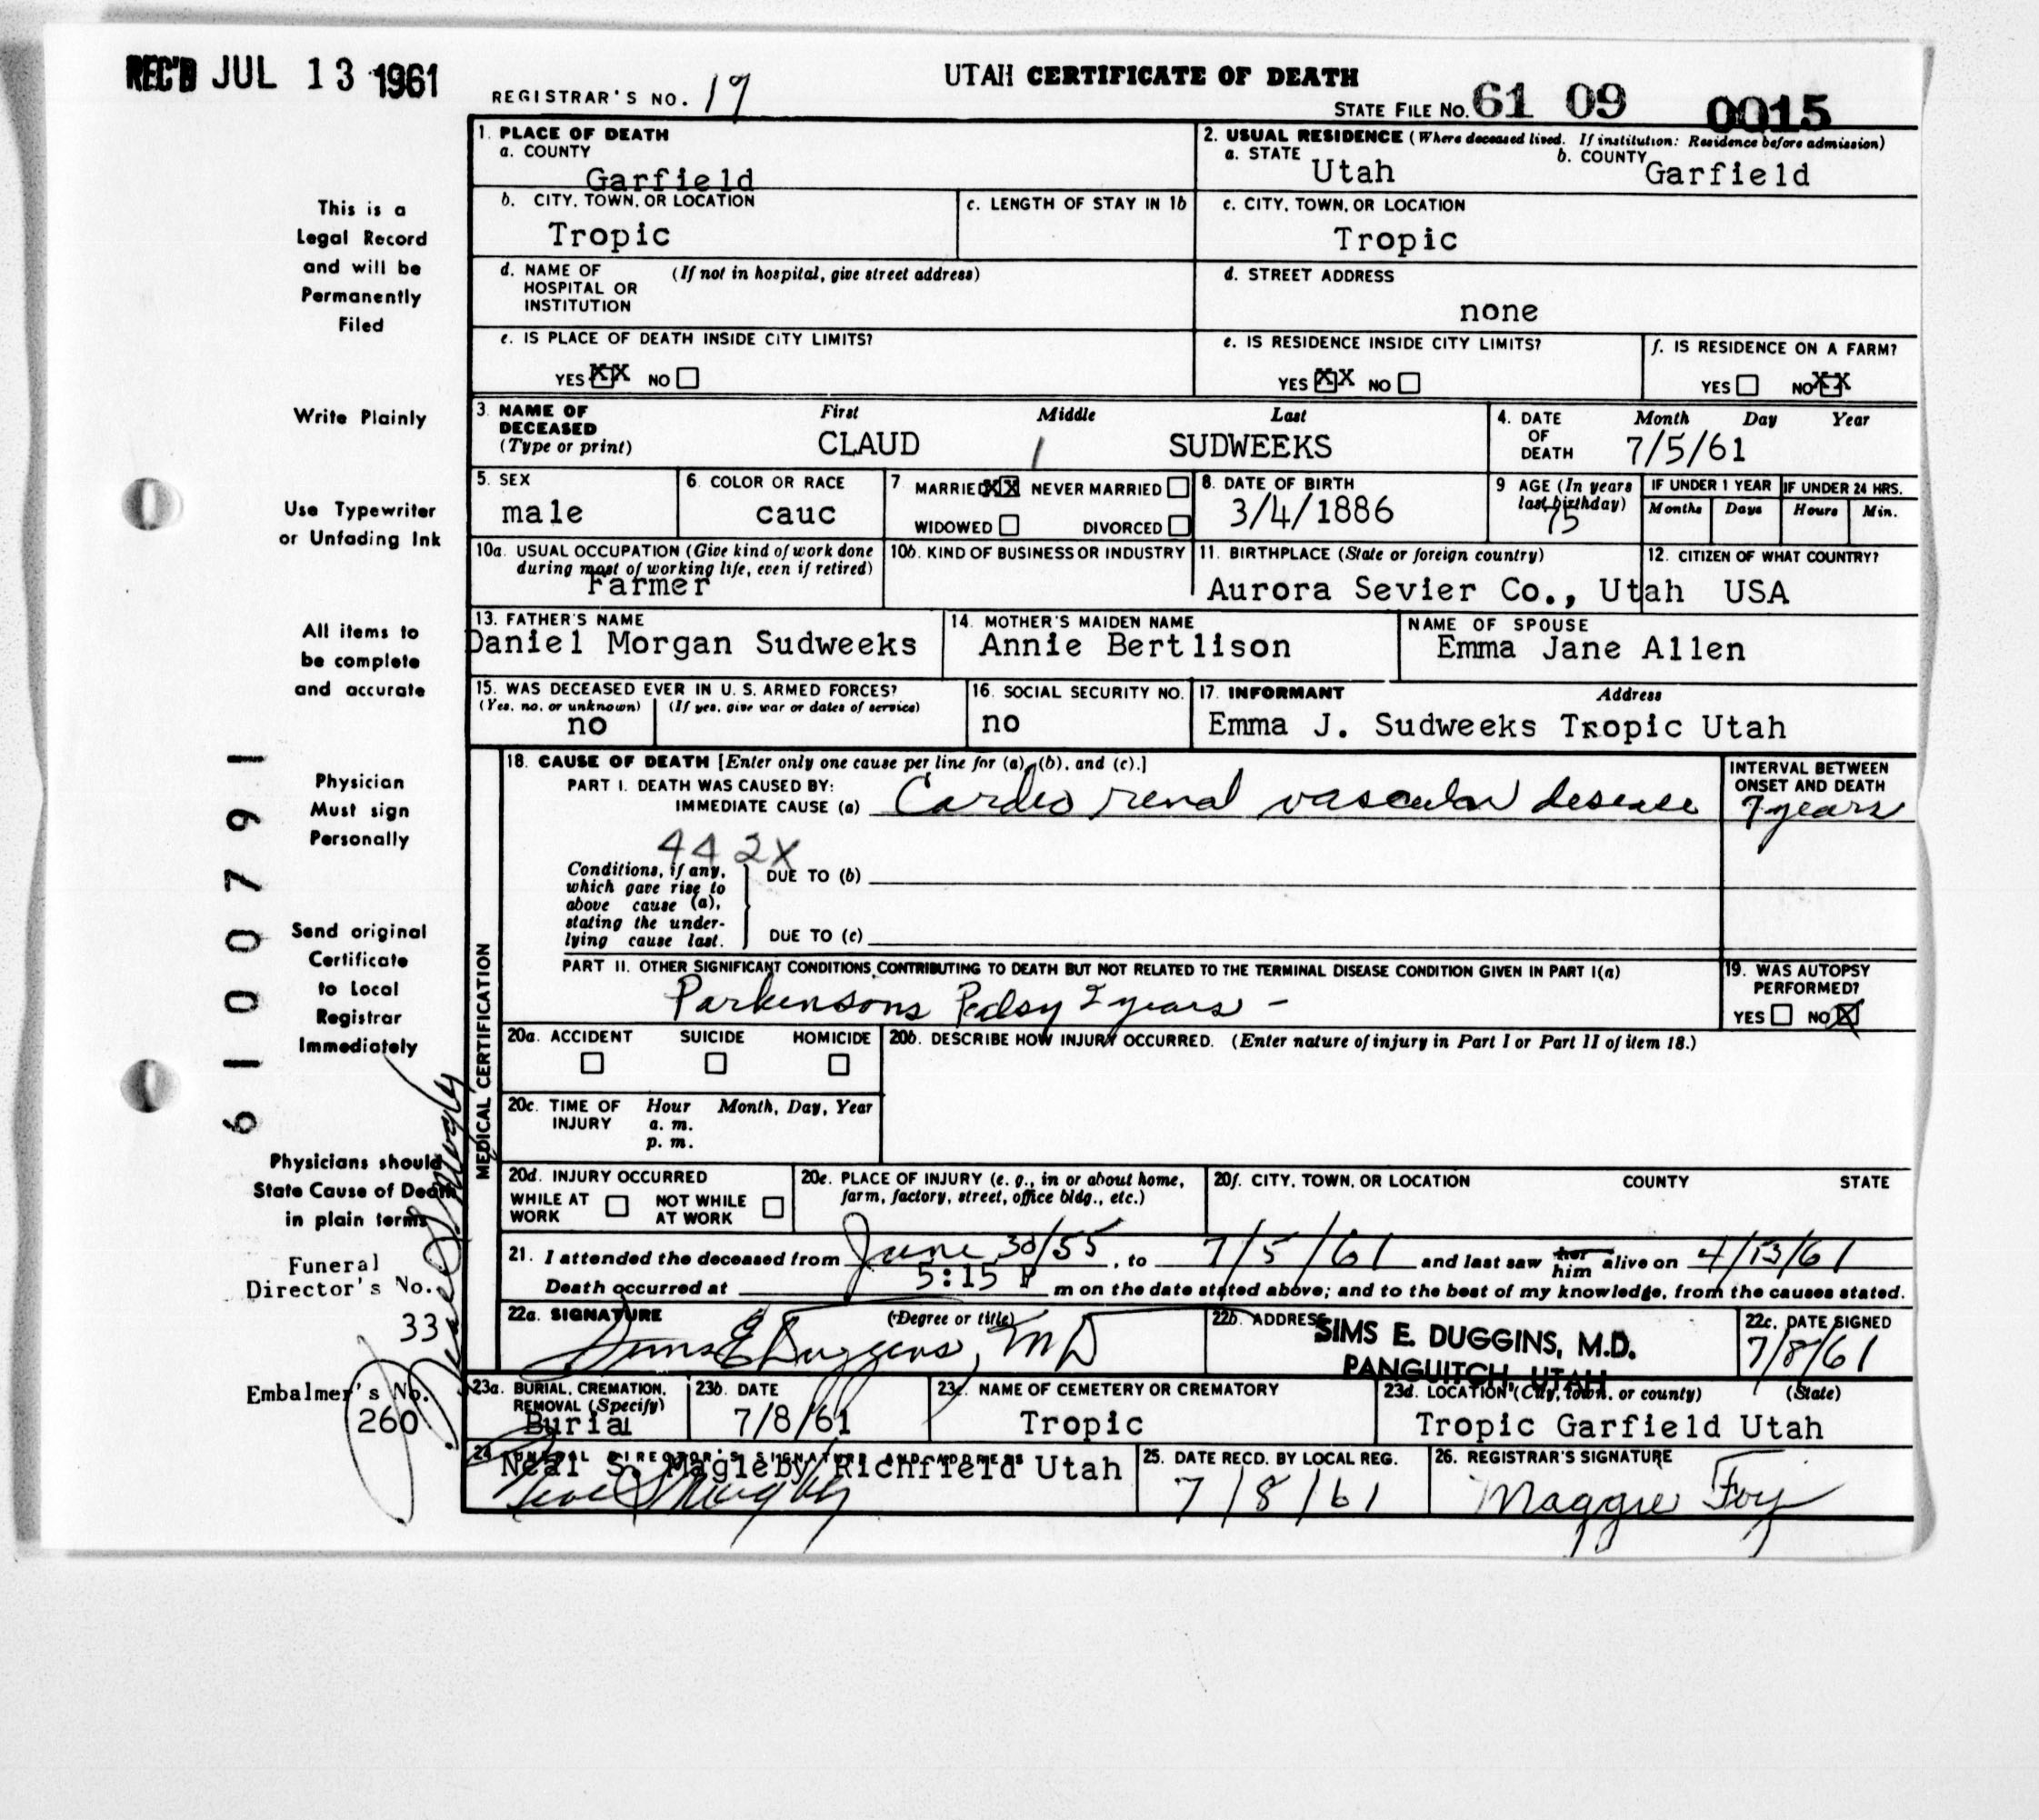 REC'D JUL 13 1961
REGISTRAR'S NO. 19
UTAH CERTIFICATE OF DEATH
STATE FILE NO. 61 09 0015
1. PLACE OF DEATH
a. COUNTY
Garfield
2. USUAL RESIDENCE (Where deceased lived. If institution: Residence before admission)
a. STATE Utah
b. COUNTY Garfield
b. CITY, TOWN, OR LOCATION
Tropic
c. LENGTH OF STAY IN 1b
c. CITY, TOWN, OR LOCATION
Tropic
d. NAME OF HOSPITAL OR INSTITUTION (If not in hospital, give street address)
d. STREET ADDRESS
none
e. IS PLACE OF DEATH INSIDE CITY LIMITS?
YES XX NO
e. IS RESIDENCE INSIDE CITY LIMITS?
YES XX NO
f. IS RESIDENCE ON A FARM?
YES NO XX
3. NAME OF DECEASED (Type or print)
First Middle Last
CLAUD / SUDWEEKS
4. DATE OF DEATH Month Day Year
7/5/61
5. SEX
male
6. COLOR OR RACE
cauc
7 MARRIED XX NEVER MARRIED
WIDOWED DIVORCED
8. DATE OF BIRTH
3/4/1886
9 AGE (In years last birthday)
75
IF UNDER 1 YEAR
Months Days
IF UNDER 24 HRS.
Hours Min.
10a. USUAL OCCUPATION (Give kind of work done during most of working life, even if retired)
Farmer
10b. KIND OF BUSINESS OR INDUSTRY
11. BIRTHPLACE (State or foreign country)
Aurora Sevier Co., Utah
12. CITIZEN OF WHAT COUNTRY?
USA
13. FATHER'S NAME
Daniel Morgan Sudweeks
14. MOTHER'S MAIDEN NAME
Annie Bertlison
NAME OF SPOUSE
Emma Jane Allen
15. WAS DECEASED EVER IN U. S. ARMED FORCES?
(Yes, no, or unknown) (If yes, give war or dates of service)
no
16. SOCIAL SECURITY NO.
no
17. INFORMANT Address
Emma J. Sudweeks Tropic Utah
MEDICAL CERTIFICATION
18. CAUSE OF DEATH [Enter only one cause per line for (a), (b), and (c).]
PART I. DEATH WAS CAUSED BY:
IMMEDIATE CAUSE (a) Cardio renal vascular desease
INTERVAL BETWEEN ONSET AND DEATH
7 years
442X
Conditions, if any, which gave rise to above cause (a), stating the underlying cause last.
DUE TO (b)
DUE TO (c)
PART II. OTHER SIGNIFICANT CONDITIONS CONTRIBUTING TO DEATH BUT NOT RELATED TO THE TERMINAL DISEASE CONDITION GIVEN IN PART I(a)
Parkinsons Palsy 2 years -
19. WAS AUTOPSY PERFORMED?
YES NO X
20a. ACCIDENT SUICIDE HOMICIDE
20b. DESCRIBE HOW INJURY OCCURRED. (Enter nature of injury in Part I or Part II of item 18.)
20c. TIME OF INJURY Hour Month, Day, Year
a. m.
p. m.
20d. INJURY OCCURRED
WHILE AT WORK NOT WHILE AT WORK
20e. PLACE OF INJURY (e. g., in or about home, farm, factory, street, office bldg., etc.)
20f. CITY, TOWN, OR LOCATION COUNTY STATE
21. I attended the deceased from June 30/55, to 7/5/61 and last saw her him alive on 4/13/61
Death occurred at 5:15 P m on the date stated above; and to the best of my knowledge, from the causes stated.
22a. SIGNATURE (Degree or title)
Sims E Duggins, MD
22b. ADDRESS
SIMS E. DUGGINS, M.D.
PANGUITCH, UTAH
22c. DATE SIGNED
7/8/61
23a. BURIAL, CREMATION, REMOVAL (Specify)
Burial
23b. DATE
7/8/61
23c. NAME OF CEMETERY OR CREMATORY
Tropic
23d. LOCATION (City, town, or county) (State)
Tropic Garfield Utah
24. FUNERAL DIRECTOR'S SIGNATURE AND ADDRESS
Neal S. Magleby Richfield Utah
Neal S Magleby
25. DATE RECD. BY LOCAL REG.
7/8/61
26. REGISTRAR'S SIGNATURE
Maggie Foy
This is a
Legal Record
and will be
Permanently
Filed
Write Plainly
Use Typewriter
or Unfading Ink
All items to
be complete
and accurate
Physician
Must sign
Personally
Send original
Certificate
to Local
Registrar
Immediately
Physicians should
State Cause of Death
in plain terms
Funeral
Director's No.
33
Embalmer's No.
260
Neal S Magleby
6100791